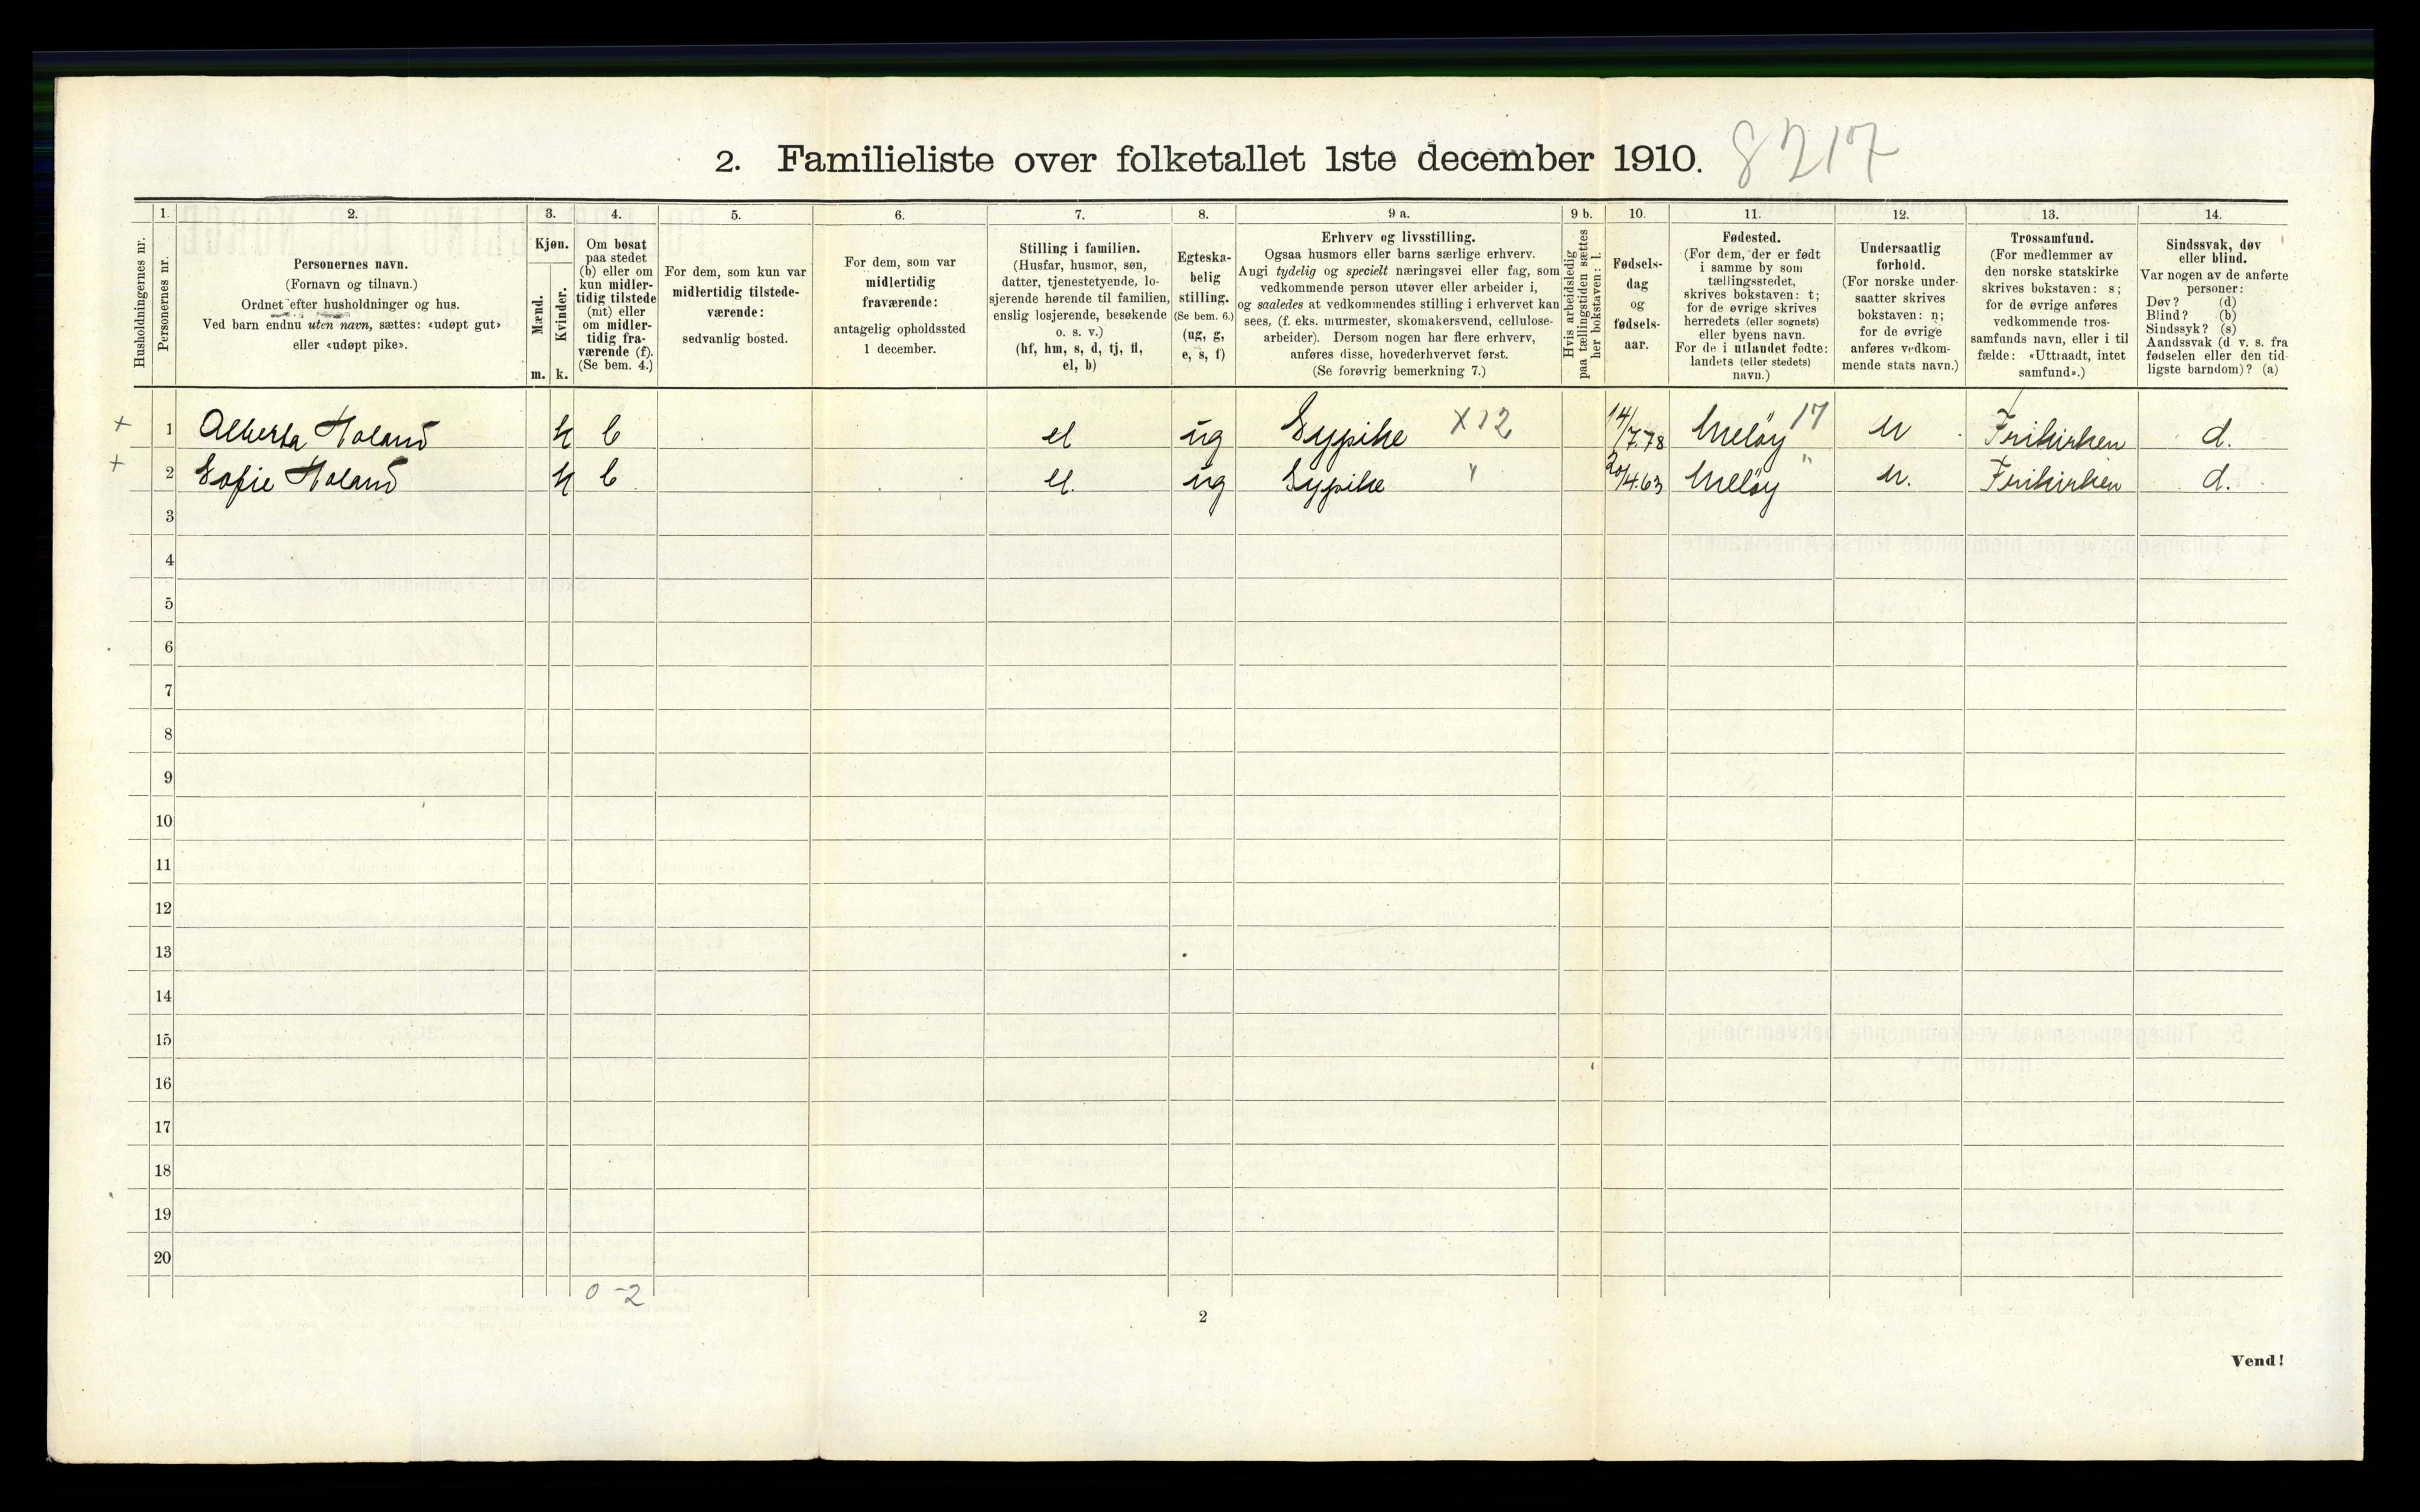 2. Familieliste over folketallet 1ste december 1910. 8217
Husholdningernes nr.
1. Personernes nr.
2. Personernes navn.
(Fornavn og tilnavn.)
Ordnet efter husholdninger og hus.
Ved barn endnu uten navn, sættes: «udøpt gut»
eller «udøpt pike».
3. Kjøn.
Mænd. m.
Kvinder. k.
4. Om bosat
paa stedet
(b) eller om
kun midler-
tidig tilstede
(mt) eller
om midler-
tidig fra-
værende (f).
(Se bem. 4.)
5. For dem, som kun var
midlertidig tilstede-
værende:
sedvanlig bosted.
6. For dem, som var
midlertidig
fraværende:
antagelig opholdssted
1 december.
7. Stilling i familien.
(Husfar, husmor, søn,
datter, tjenestetyende, lo-
sjerende hørende til familien,
enslig losjerende, besøkende
o. s. v.)
(hf, hm, s, d, tj, fl,
el, b)
8. Egteska-
belig
stilling.
(Se bem. 6.)
(ug, g,
e, s, f)
9 a. Erhverv og livsstilling.
Ogsaa husmors eller barns særlige erhverv.
Angi tydelig og specielt næringsvei eller fag, som
vedkommende person utøver eller arbeider i,
og saaledes at vedkommendes stilling i erhvervet kan
sees, (f. eks. murmester, skomakersvend, cellulose-
arbeider). Dersom nogen har flere erhverv,
anføres disse, hovederhvervet først.
(Se forøvrig bemerkning 7.)
9 b. Hvis arbeidsledig
paa tællingstiden sættes
her bokstaven: l.
10. Fødsels-
dag
og
fødsels-
aar.
11. Fødested.
(For dem, der er født
i samme by som
tællingsstedet,
skrives bokstaven: t;
for de øvrige skrives
herredets (eller sognets)
eller byens navn.
For de i utlandet fødte:
landets (eller stedets)
navn.)
12. Undersaatlig
forhold.
(For norske under-
saatter skrives
bokstaven: n;
for de øvrige
anføres vedkom-
mende stats navn.)
13. Trossamfund.
(For medlemmer av
den norske statskirke
skrives bokstaven: s;
for de øvrige anføres
vedkommende tros-
samfunds navn, eller i til
fælde: «Uttraadt, intet
samfund».)
14. Sindssvak, døv
eller blind.
Var nogen av de anførte
personer:
Døv? (d)
Blind? (b)
Sindssyk? (s)
Aandssvak (d. v. s. fra
fødselen eller den tid-
ligste barndom)? (a)
+ 1 Alberta Holand k b el ug Sypike X12 14/7.78 Meløy 17 n Frikirken d.
+ 2 Sofie Holand k b el. ug Sypike " 20/4.63 Meløy " n. Frikirken d.
3
4
5
6
7
8
9
10
11
12
13
14
15
16
17
18
19
20
0 - 2
2
Vend!